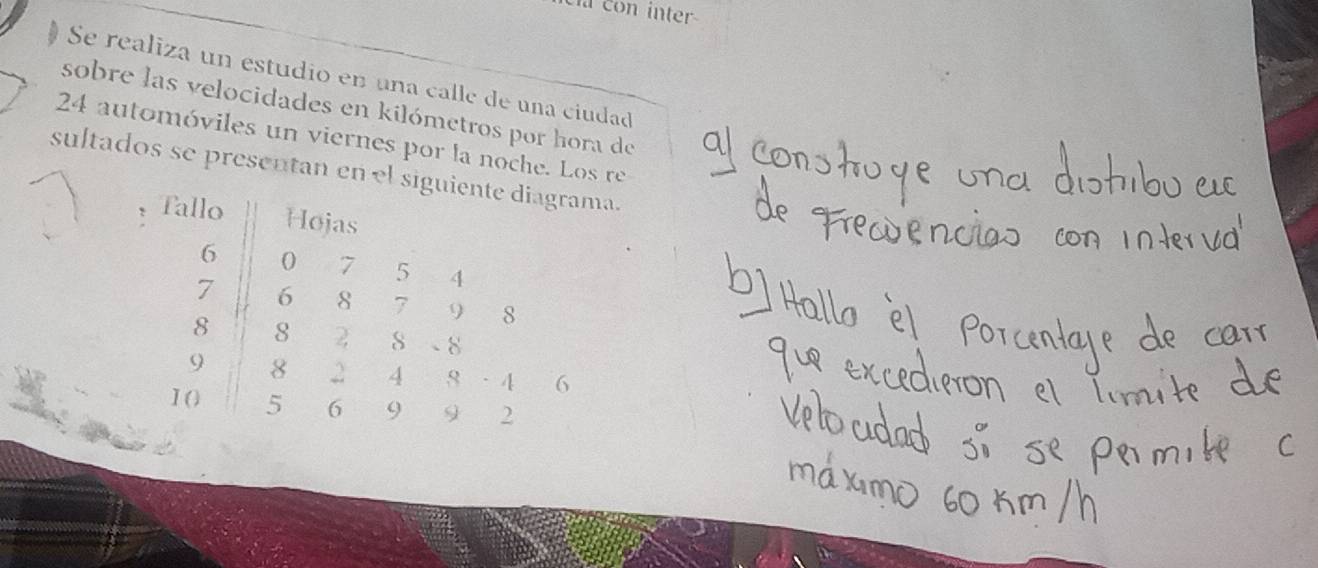 con inter-
Se realiza un estudio en una calle de una ciudad
sobre las velocidades en kilómetros por hora de
24 automóviles un viernes por la noche. Los re
sultados se presentan en el siguiente diagrama.
Tallo Hojas
6 0 7 5 4
7 6 8 7 9 8
8 8 2 8 8
9 8 2 4 8 4 6
10 5 6 9 9 2
a) construye una distribu
de frecuencias con interva
b) Halla el porcentaje de carr
que excedieron el limite de
velocidad si se permite c
máximo 60 Km/h